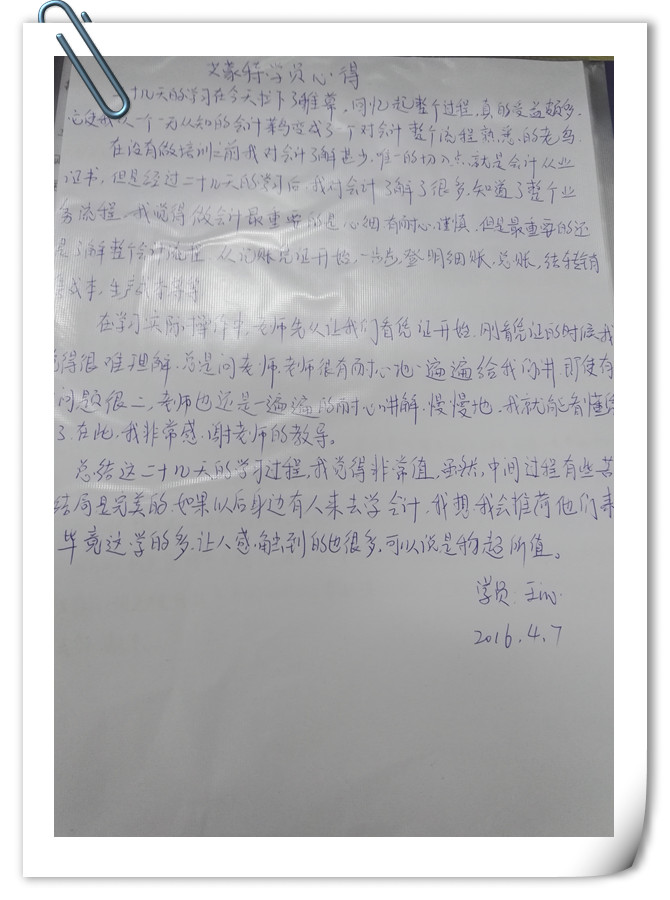 艾蒙特学员心得
十几天的学习在今天拉下了帷幕,回忆起整个过程,真的受益颇多.
它使我从一个一无认知的会计菜鸟变成了一个对会计整个流程熟悉的老鸟.
在没有做培训之前我对会计了解甚少,唯一的切入点就是会计从业
证书,但是经过二十几天的学习后,我对会计了解了很多,知道了整个业
务流程.我觉得做会计最重要的是心细有耐心谨慎.但是最重要的还
是了解整个会计流程.从记账凭证开始,一步步登明细账.总账,结转销售
成本,生产成本等等
在学习实际操作中,老师先从让我们看凭证开始.刚看凭证的时候我
觉得很难理解.总是问老师.老师很有耐心地一遍遍给我们讲.即使有
问题很二,老师也还是一遍遍的耐心讲解.慢慢地,我就能看懂
了.在此,我非常感谢老师的教导。
总结这二十几天的学习过程,我觉得非常值,虽然,中间过程有些苦
结局是完美的.如果以后身边有人来去学会计,我想我会推荐他们来
毕竟这学的多.让人感触到的也很多,可以说是物超所值。
学员:王
2016.4.7